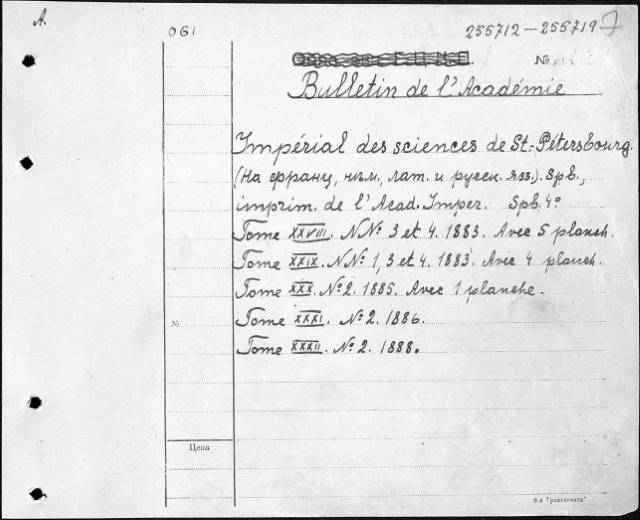 A.
061
255712-255719
№
Bulletin de l'Académie
Impérial des sciences de St.-Pétersbourg.
(На франц., нѣм., лат. и русск. яз.). Spb.,
imprim. de l'Acad. Imper. Spb. 4°
Tome XXVIII. NNo 3 et 4. 1883. Avec 5 planch.
Tome XXIX. NNo 1, 3 et 4. 1883. Avec 4 planch.
Tome XXX. No 2. 1885. Avec 1 planche.
№
Tome XXXI. No 2. 1886.
Tome XXXII. No 2. 1888.
Цена
8-я Транспечати"